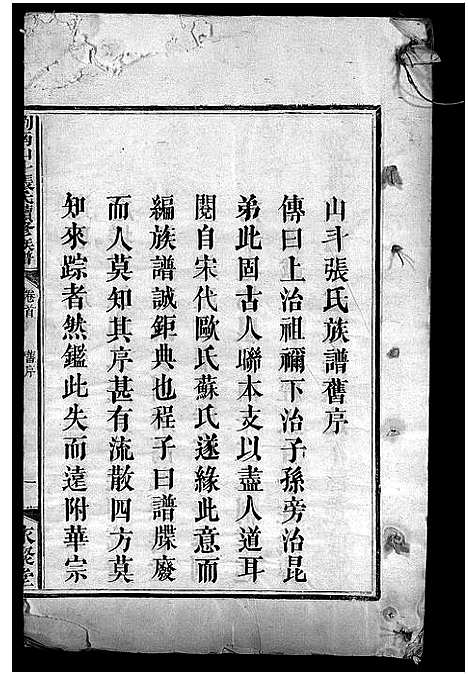 山斗張氏族譜舊序
傳曰上治祖禰下治子孫旁治昆
弟此固古人聯本支以盡人道耳
閱自宋代歐氏蘇氏遂緣此意而
編族譜誠鉅典也程子曰譜牒廢
而人莫知其序甚有流散四方莫
知來踪者然鑑此失而遠附華宗
張氏續修族譜 卷首 舊序 一